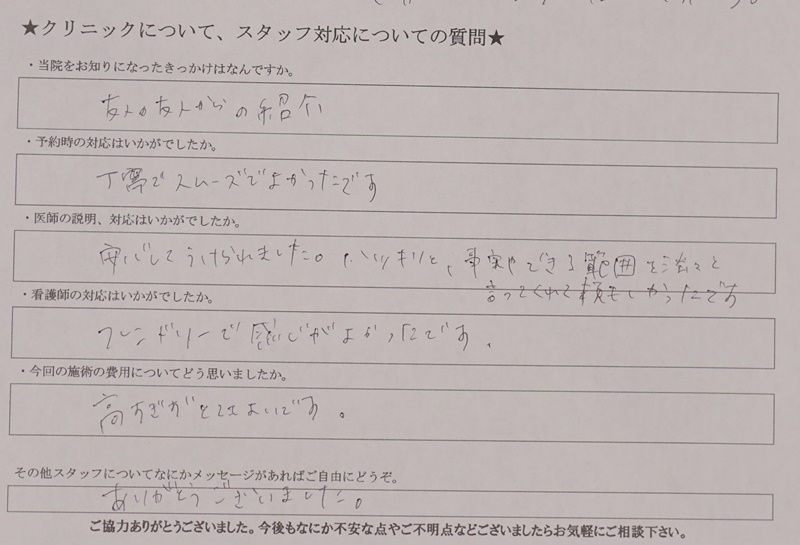 ★クリニックについて、スタッフ対応についての質問★
・当院をお知りになったきっかけはなんですか。
友人の友人からの紹介
・予約時の対応はいかがでしたか。
丁寧でスムーズでよかったです
・医師の説明、対応はいかがでしたか。
安心してうけられました。ハッキリと、事実やできる範囲を淡々と
言ってくれて頼もしかったです
・看護師の対応はいかがでしたか。
フレンドリーで感じがよかったです。
・今回の施術の費用についてどう思いましたか。
高すぎず
その他スタッフについてなにかメッセージがあればご自由にどうぞ。
ありがとうございました。
ご協力ありがとうございました。今後もなにか不安な点やご不明点などございましたらお気軽にご相談下さい。